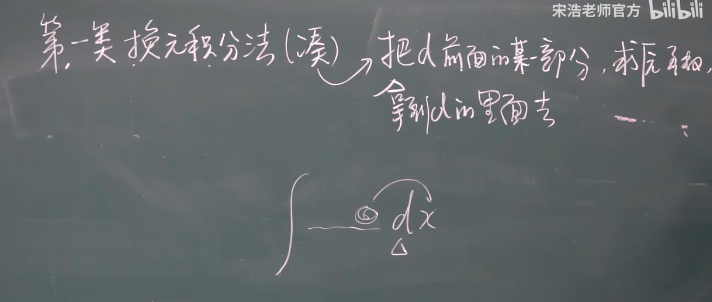 宋浩老师官方 bilibili
第一类换元积分法(凑) 把d前面的某部分,求原函数,
拿到d的里面去
∫ dx